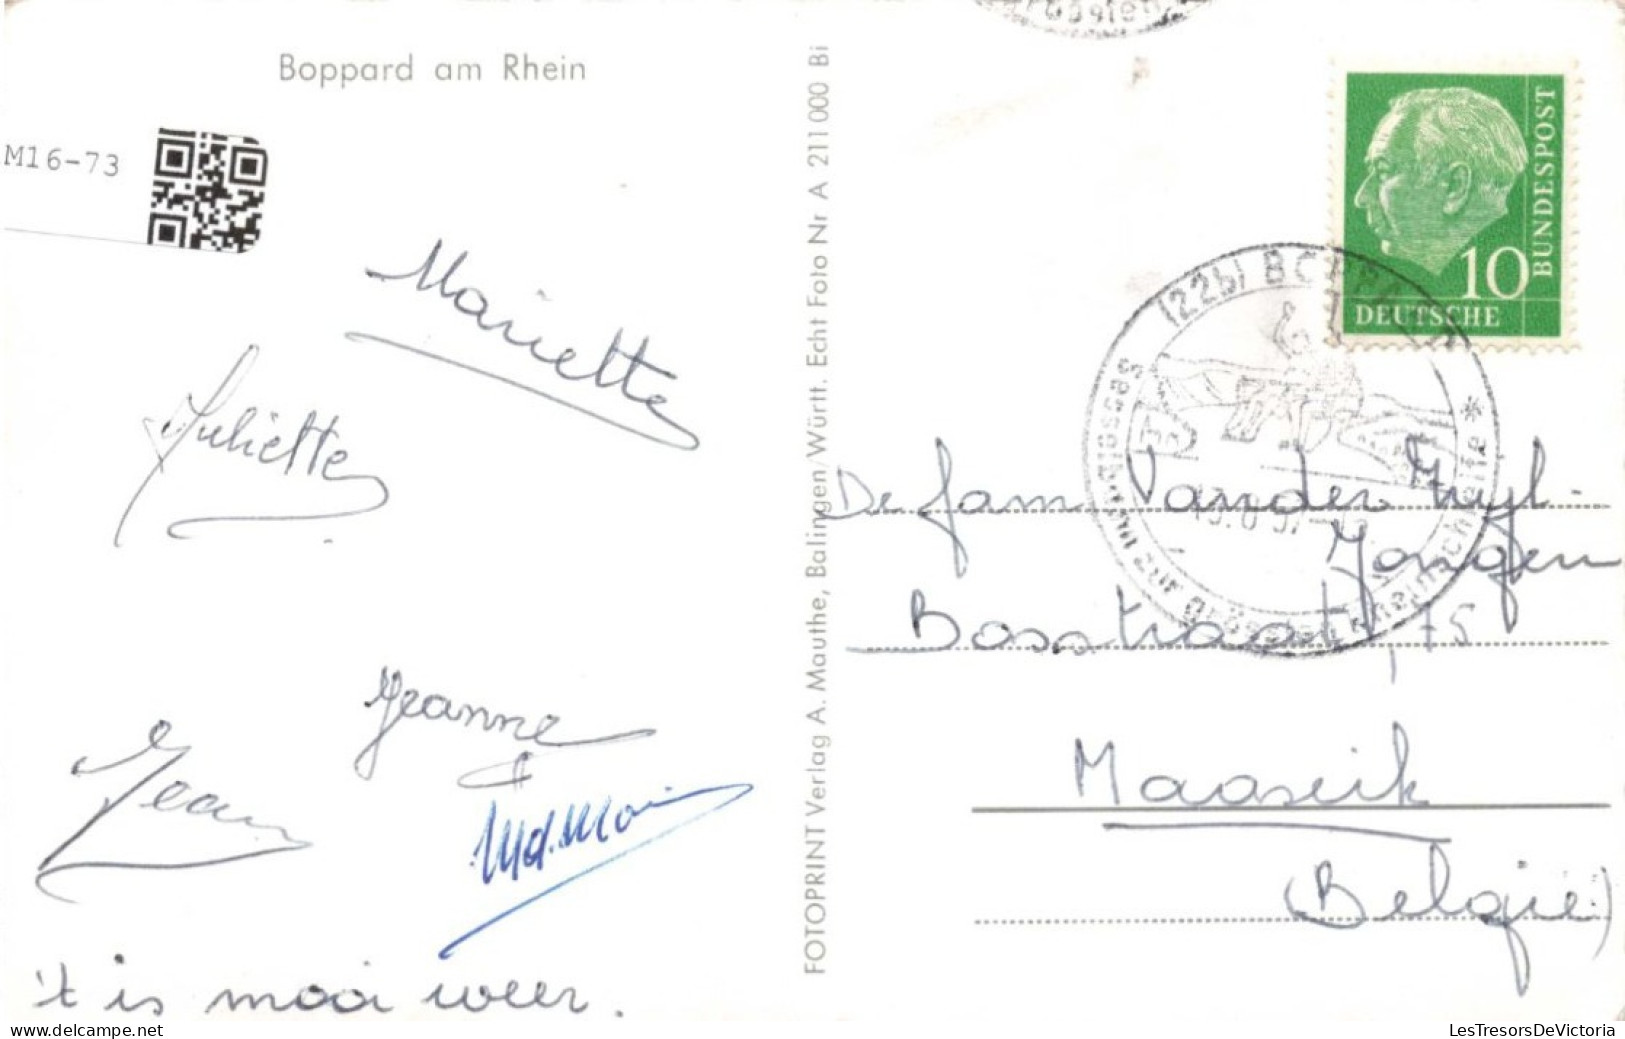 Boppard am Rhein
M16-73
Mariette
Juliette
Jeanne
Jean
't is mooi weer.
FOTOPRINT Verlag A. Mauthe, Balingen/Württ. Echt Foto Nr A 211000 Bi
DEUTSCHE
BUNDESPOST
10
(22b) BOPPARD
De fam Van der
Jongen
Bosstraat, 75
Maaseik
(België)
LesTresorsDeVictoria
www.delcampe.net